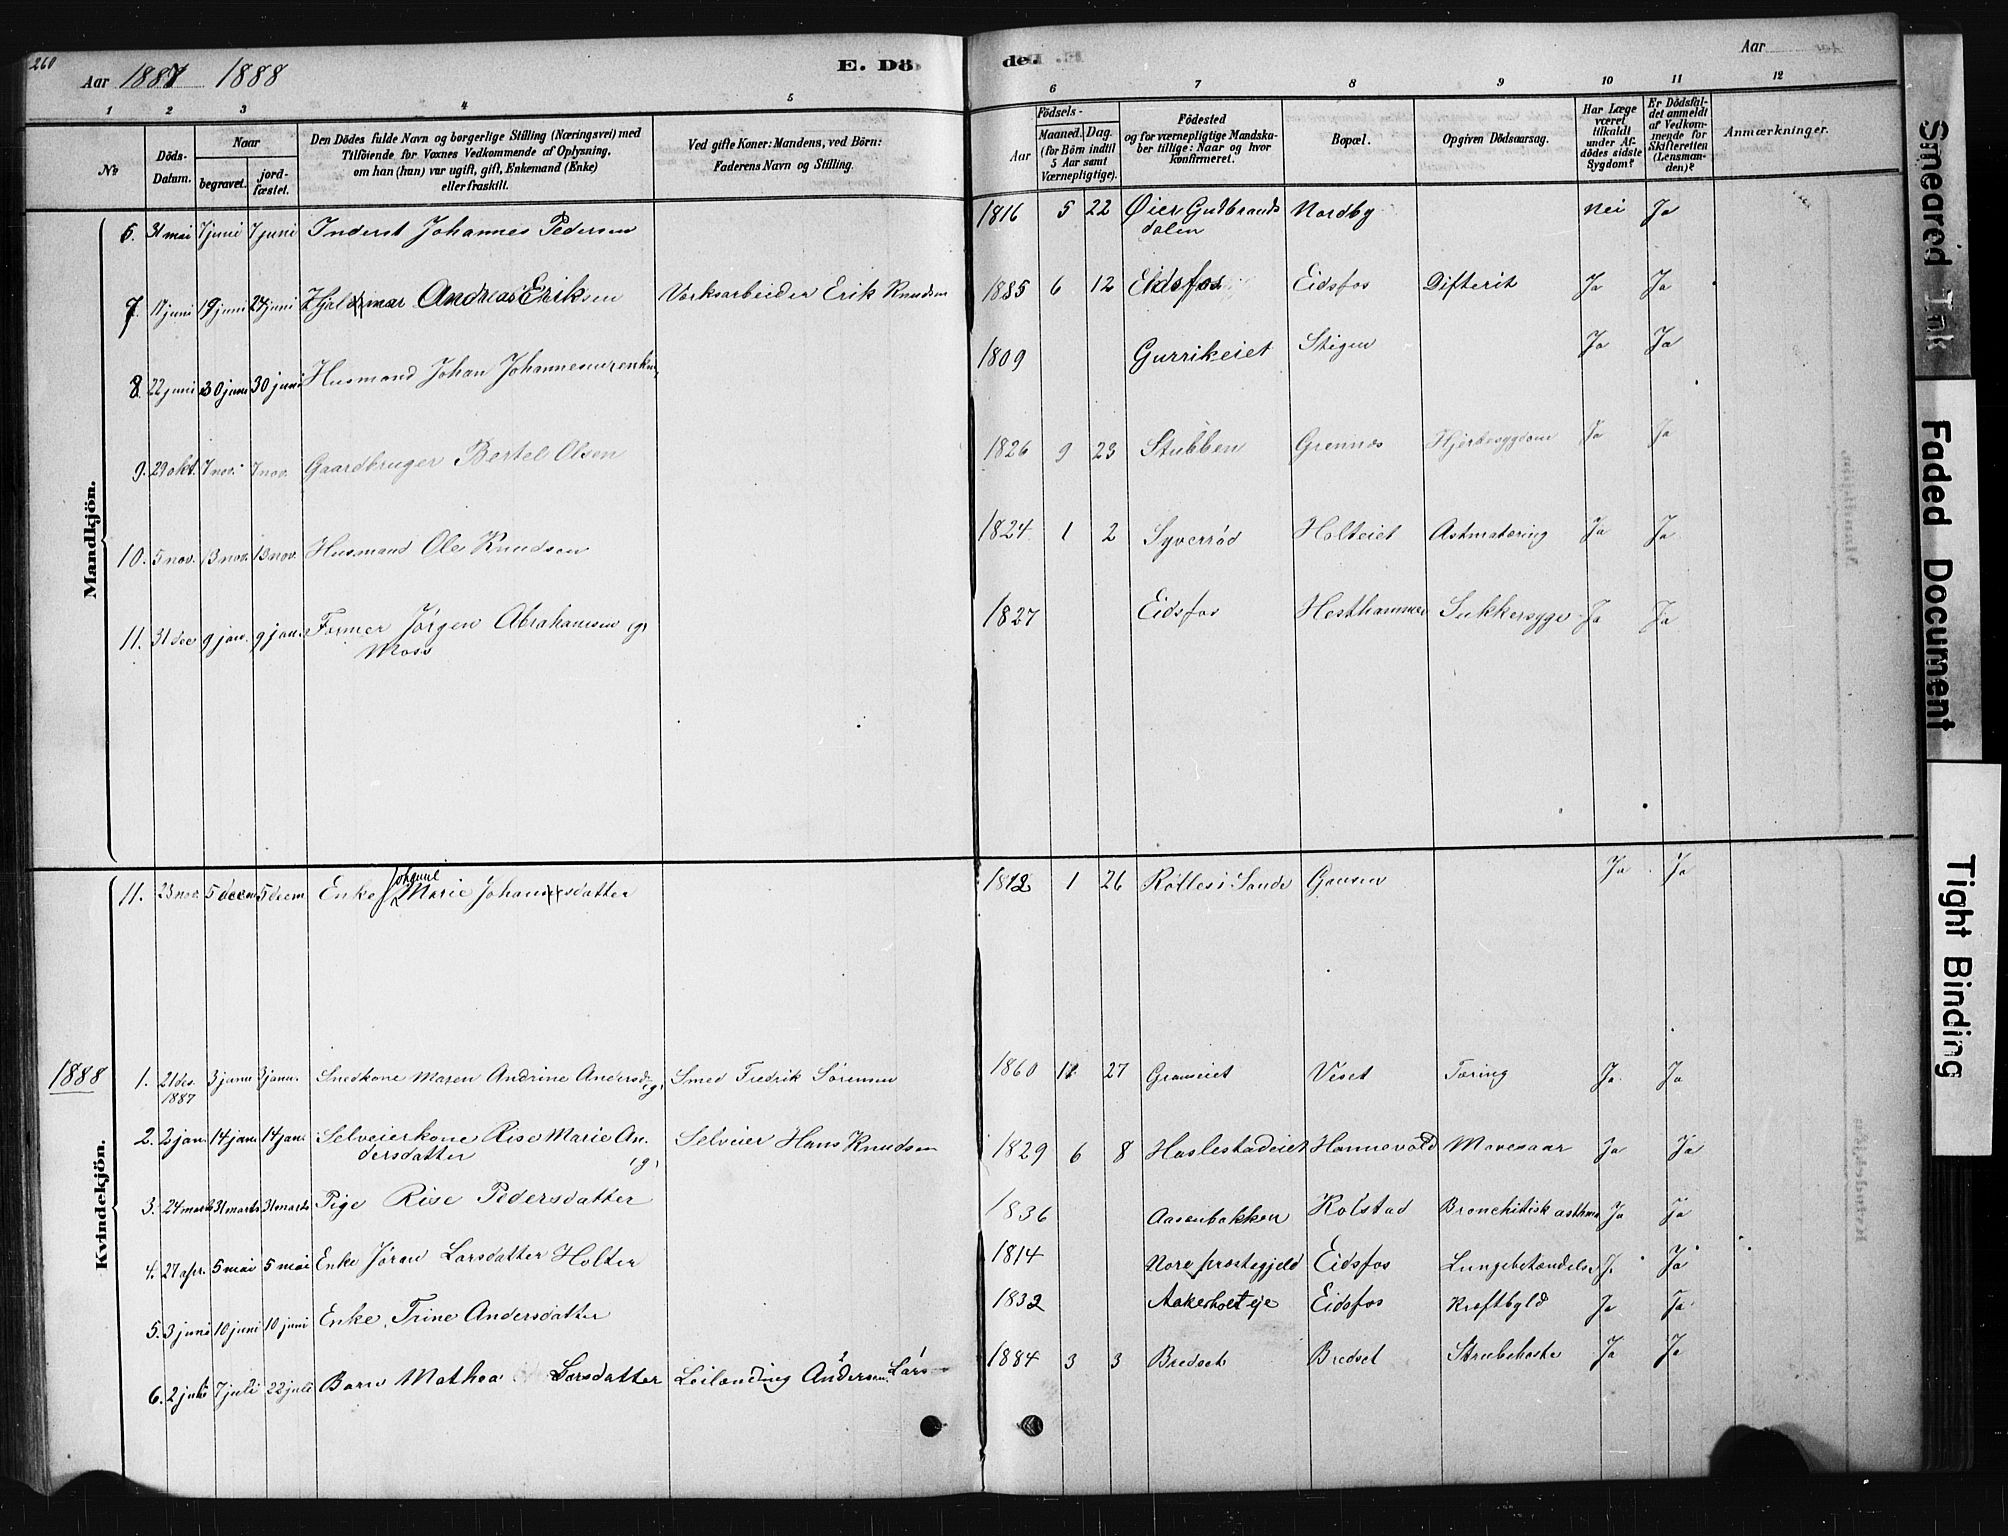 260
Aar 1887 1888
E. Dö
de.
Aar
1 2 3 4 5 6 7 8 9 10 11 12
No
Döds-Datum.
Naar
begravet.
jord-fæstet.
Den Dödes fulde Navn og borgerlige Stilling (Næringsvei) med
Tilföiende for Voxnes Vedkommende af Oplysning,
om han (hun) var ugift, gift, Enkemand (Enke)
eller fraskilt.
Ved gifte Koner: Mandens, ved Börn:
Faderens Navn og Stilling.
Födsels-
Aar
Maaned.
Dag.
(for Börn indtil
5 Aar samt
Værnepligtige).
Födested
og for værnepligtige Mandska-
ber tillige: Naar og hvor
konfirmeret.
Bopæl.
Opgiven Dödsaarsag.
Har Læge
været
tilkaldt
under Af-
dödes sidste
Sygdom?
Er Dödsfal-
det anmeldt
af Vedkom-
mende for
Skifteretten
(Lensman-
den)?
Anmærkninger.
Mandkjön.
6. 31 mai 7 juni 7 juni Inderst Johannes Pedersen 1816 5 22 Øier Gudbrands Nordby nei Ja
dalen
7. 17 juni 19 juni 24 juni Hjalmar Andreas Eriksen Verksarbeider Erik Knudsen 1885 6 12 Eidsfos Eidsfos Difterit Ja Ja
8. 22 juni 30 juni 30 juni Husmand Johan Johannesen 1809 Gurrikeiet Stigen Ja Ja
9. 29 okt. 7 nov. 7 nov. Gaardbruger Bertel Olsen 1826 9 23 Stubben Grennes Hjertesygdom Ja Ja
10. 5 nov. 13 nov. 13 nov. Husmand Ole Knudsen 1824 1 2 Syverrød Holteiet Astmatæring Ja Ja
11. 31 dec 9 jan. 9 jan. Former Jørgen Abrahamsen (g) 1827 Eidsfos Hesthammer Sukkersyge Ja Ja
Moss
11. 23 nov. 5 decm 5 decm Enke Johanne Marie Johansdatter 1812 1 26 Røttes i Sande Gausen Ja Ja
1888
Kvindekjön.
1. 21 des. 3 janu 3 janu. Smedkone Maren Andrine Andersd. (g) Smed Fredrik Sørensen 1860 11 27 Granseiet Viset Tæring Ja Ja
1887
2. 2 jan. 14 jan. 14 jan. Selveierkone Rise Marie An- Selveier Hans Knudsen 1829 6 8 Haslestadeiet Hannevold Mavesaar Ja Ja
dersdatter (g)
3. 24 marts 31 marts 31 marts Pige Rise Pedersdatter 1836 Aasenbakken Kolstad Bronchitisk asthma Ja Ja
4. 27 apr. 5 mai 5 mai Enke Jøran Larsdatter Holter 1814 Nore prestegjeld Eidsfos Lungebetændelse J. Ja
5. 3 juni 10 juni 10 juni Enke Trine Andersdatter 1832 Aakerholt eje Eidsfos Kræftbyld Ja Ja
6. 2 juli 7 juli 22 juli Barn Mathea Larsdatter Leilænding Andersen Lars 1884 3 3 Bredset Bredset Strubehoste Ja Ja
Smeared Ink
Faded Document
Tight Binding